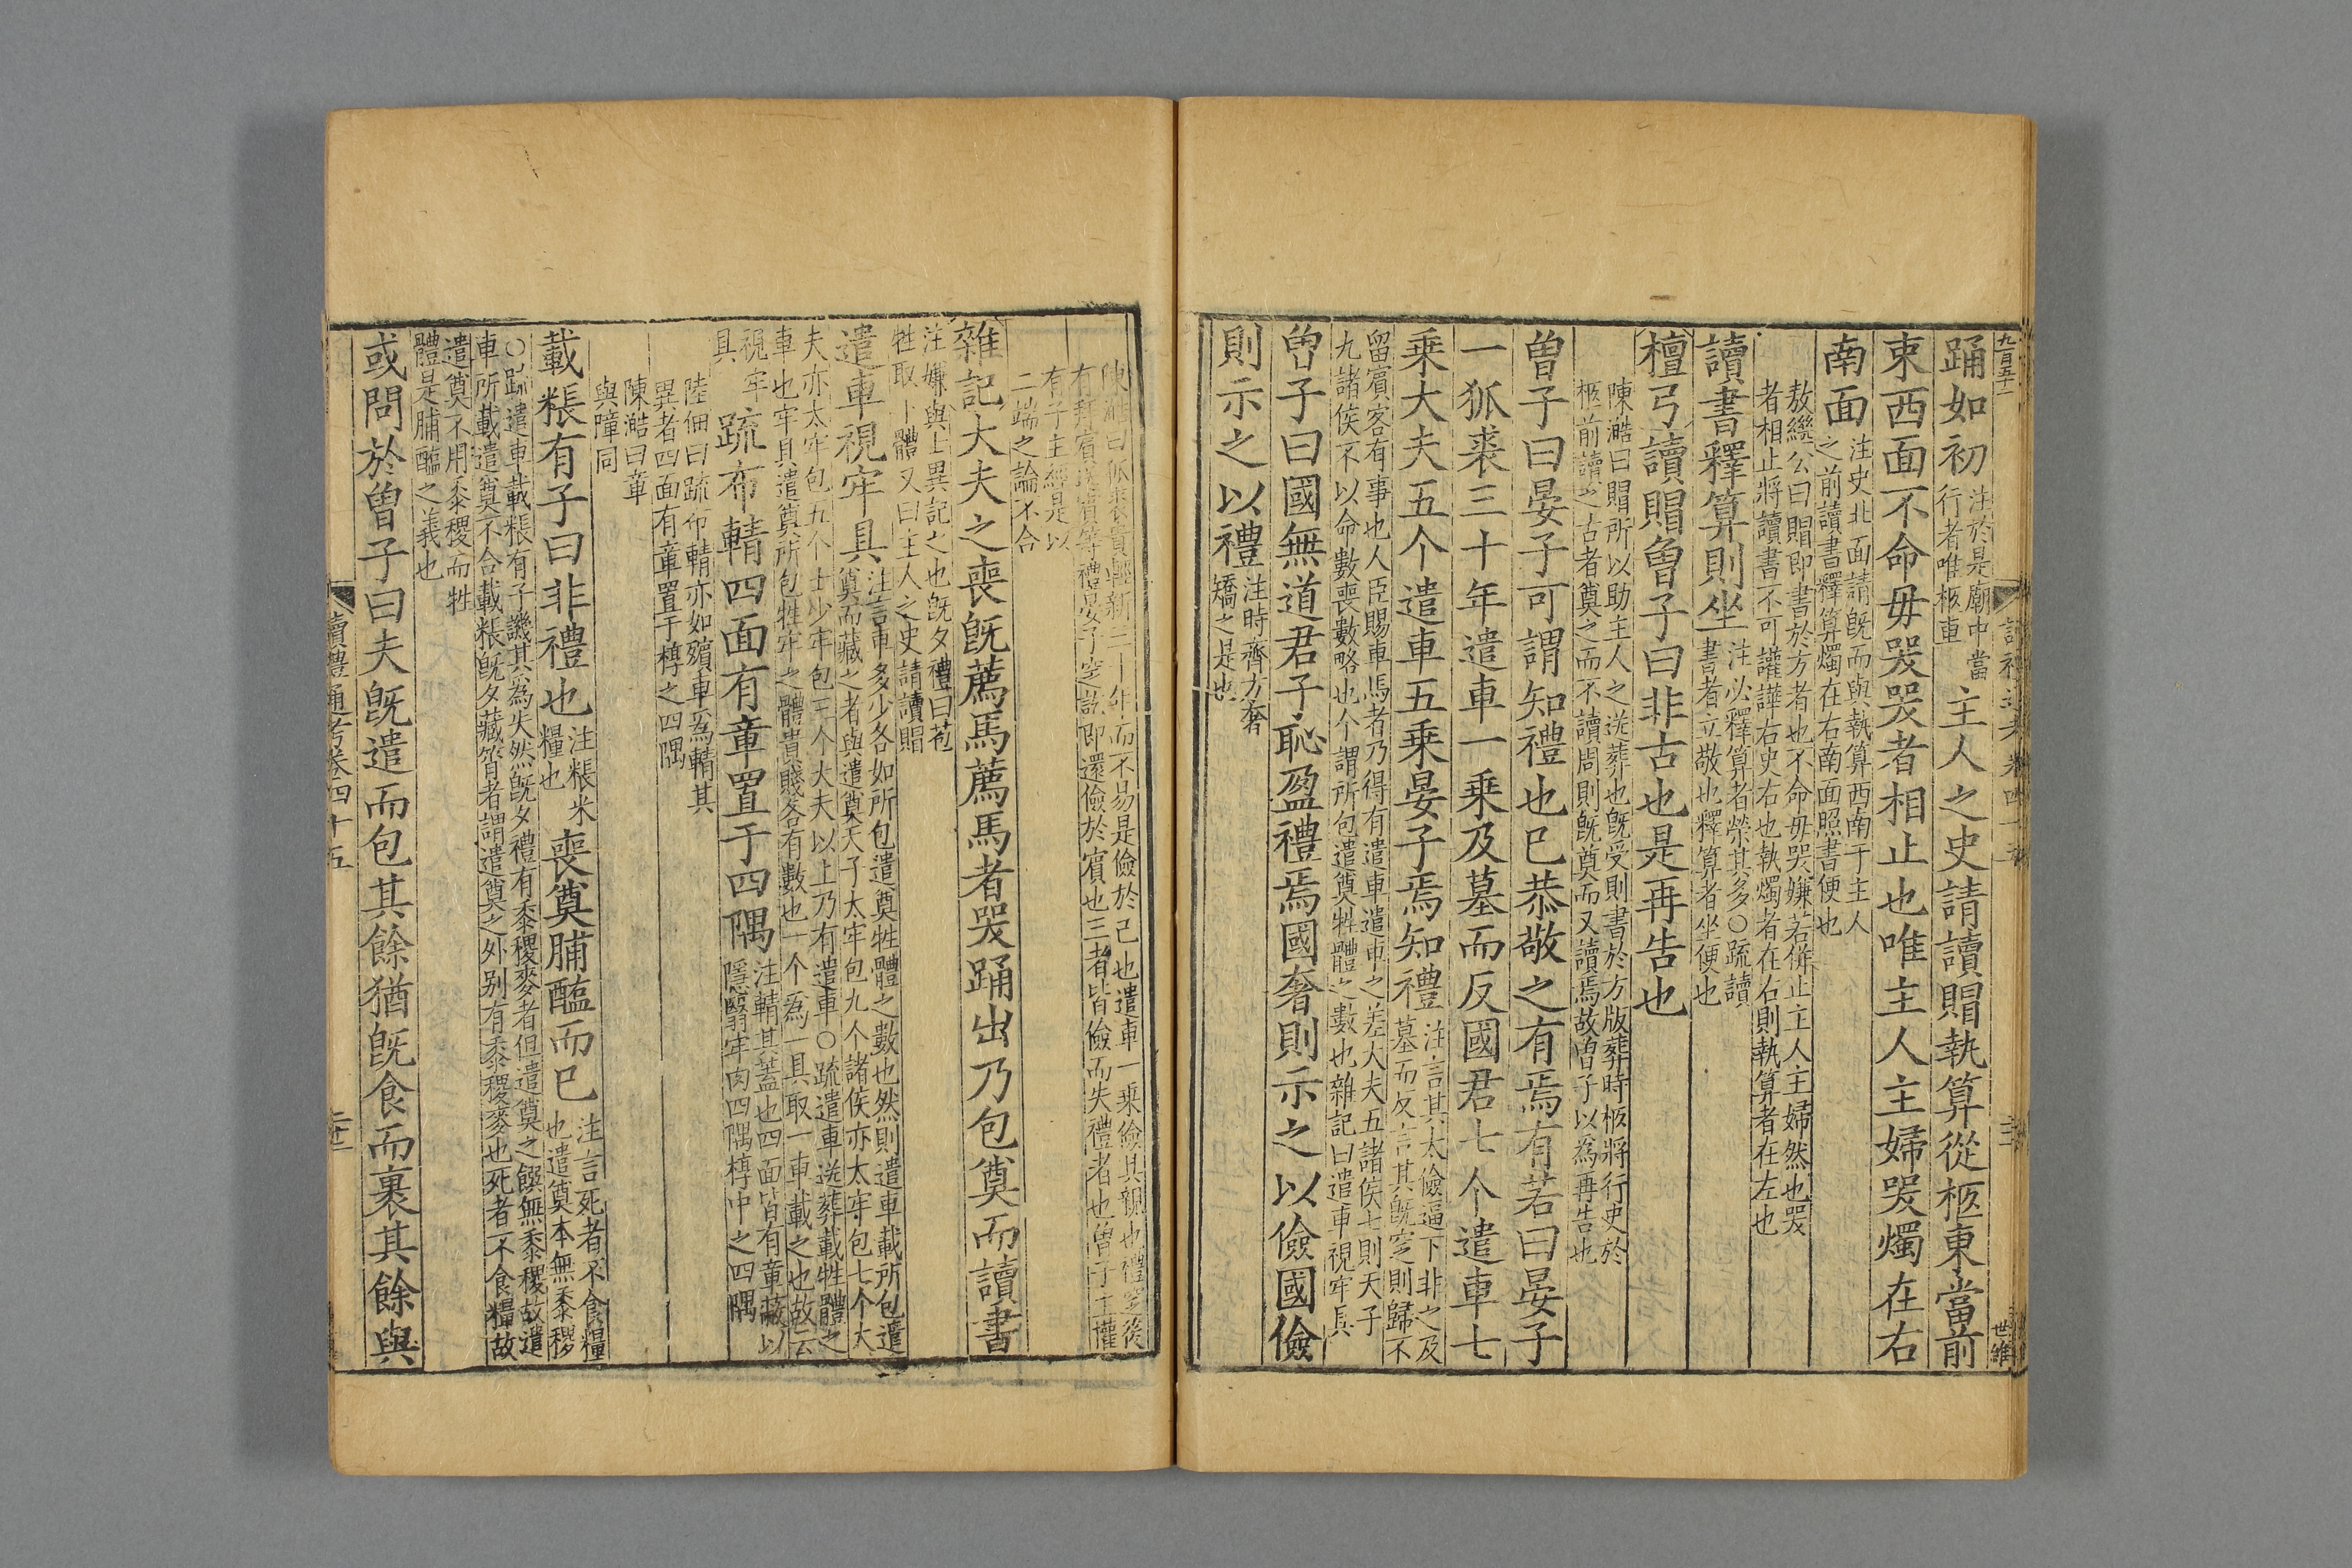 九百五十一
踊如初
注於是廟中當
行者唯柩車
主人之史請讀賵執算從柩東當前
束西面不命毋哭哭者相止也唯主人主婦哭燭在右
南面
注史北面請旣而與執算西南于主人
之前讀書釋算燭在右南面照書便也
敖繼公曰賵即書於方者也不命毋哭嫌若倂止主人主婦然也哭
者相止將讀書不可讙譁右史右也執燭者在右則執算者在左也
讀書釋算則坐
注必釋算者榮其多○疏讀
書者立敬也釋算者坐便也
檀弓讀賵曾子曰非古也是再告也
陳澔曰賵所以助主人之送葬也旣受則書於方版葬時柩將行史於
柩前讀之古者奠之而不讀周則旣奠而又讀焉故曾子以為再告也
曾子曰晏子可謂知禮也已恭敬之有焉有若曰晏子
一狐裘三十年遣車一乗及墓而反國君七个遣車七
乗大夫五个遣車五乗晏子焉知禮
注言其大儉逼下非之及
墓而反言其旣窆則歸不
留賓客有事也人臣賜車馬者乃得有遣車遣車之差大夫五諸侯七則天子
九諸侯不以命數喪數略也个謂所包遣奠牲體之數也雜記曰遣車視牢具
曾子曰國無道君子恥盈禮焉國奢則示之以儉國儉
則示之以禮
注時齊方奢
矯之是也
陳澔曰狐裘貴輕新三十年而不易是儉於己也遣車一乗儉其親也禮窆後
有拜賓送賓等禮晏子窆訖即還儉於賓也三者皆儉而失禮者也曾子主權
有子主經是以
二端之論不合
雜記大夫之喪旣薦馬薦馬者哭踊出乃包奠而讀書
注嫌與士異記之也旣夕禮曰苞
牲取下體又曰主人之史請讀賵
遣車視牢具
注言車多少各如所包遣奠牲體之數也然則遣車載所包遣
奠而藏之者與遣奠天子太牢包九个諸侯亦太牢包七个大
夫亦太牢包五个士少牢包三个大夫以上乃有遣車○疏遣車送葬載牲體之
車也牢具遣奠所包牲牢之體貴賤各有數也一个為一具取一車載之也故云
視牢
具
疏布輤四面有章置于四隅
注輤其蓋也四面皆有章蔽以
隱翳牢肉四隅椁中之四隅
陸佃曰疏布輤亦如殯車為輤其
異者四面有章置于椁之四隅
陳澔曰章
與障同
載粻有子曰非禮也
注粻米
糧也
喪奠脯醢而已
注言死者不食糧
也遣奠本無黍稷
○疏遣車載粻有子譏其為失然旣夕禮有黍稷麥者但遣奠之饌無黍稷故遣
車所載遣奠不合載粻旣夕藏筲者謂遣奠之外别有黍稷麥也死者不食糧故
遣奠不用黍稷而牲
體是脯醢之義也
或問於曾子曰夫旣遣而包其餘猶旣食而裹其餘與
讀禮通考卷四十五